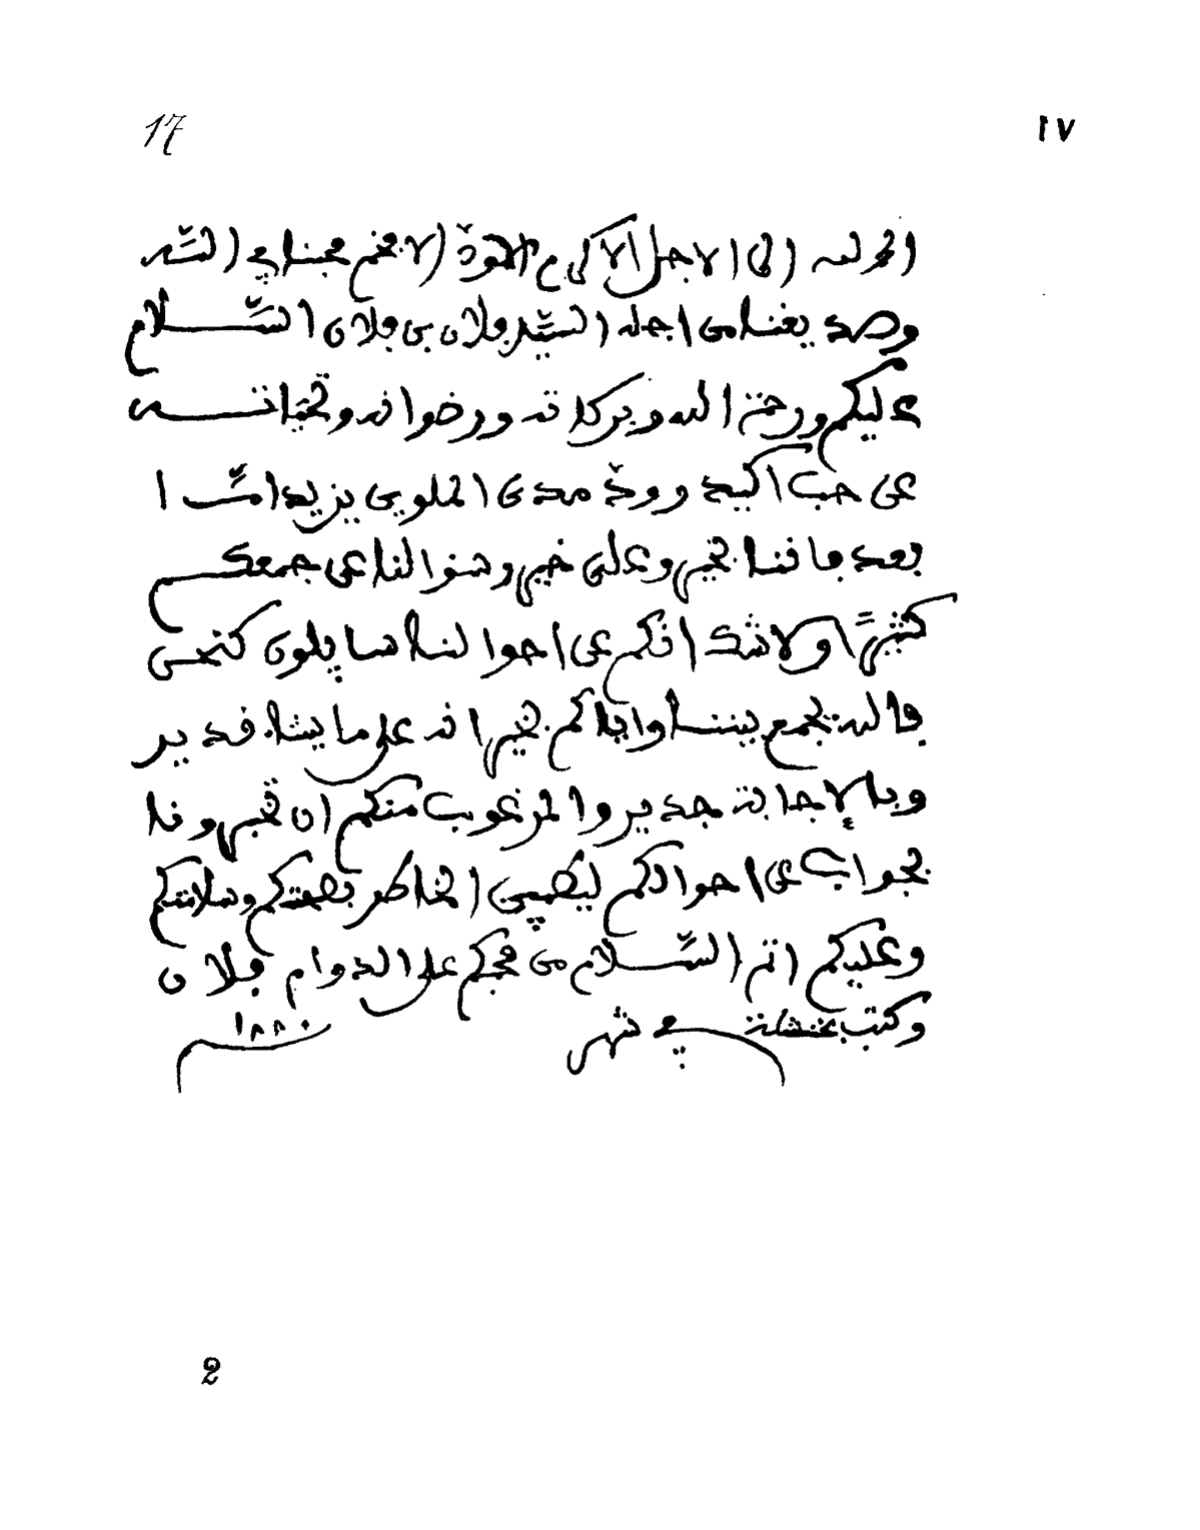 17 ١٧
الحمد لله الى الاجل الاكرم الاودّ الافخم محبنا في السّر
وصديقنا من اجله السّيد فلان بن فلان السّلام
عليكم ورحمة الله وبركاته ورضوانه وتحيّاته
عن حب اكيد وودّ مدى الملوين يزيد امّا
بعد فاننا بخير وعلى خير وسوالنا عن جمعكم
كثيرًا ولا شك انكم عن احوالنا سايلون كنحن
فالله يجمع بيننا واياكم بخير انه على ما يشاء قدير
وبالإجابة جدير والمرغوب منكم ان تخبرونا
بجواب عن احوالكم ليطمين الخاطر بصحتكم وسلامتكم
وعليكم اتم السّلام من محبكم على الدوام فلان
وكتب بخنشلة في شهر ١٨٨٠
2